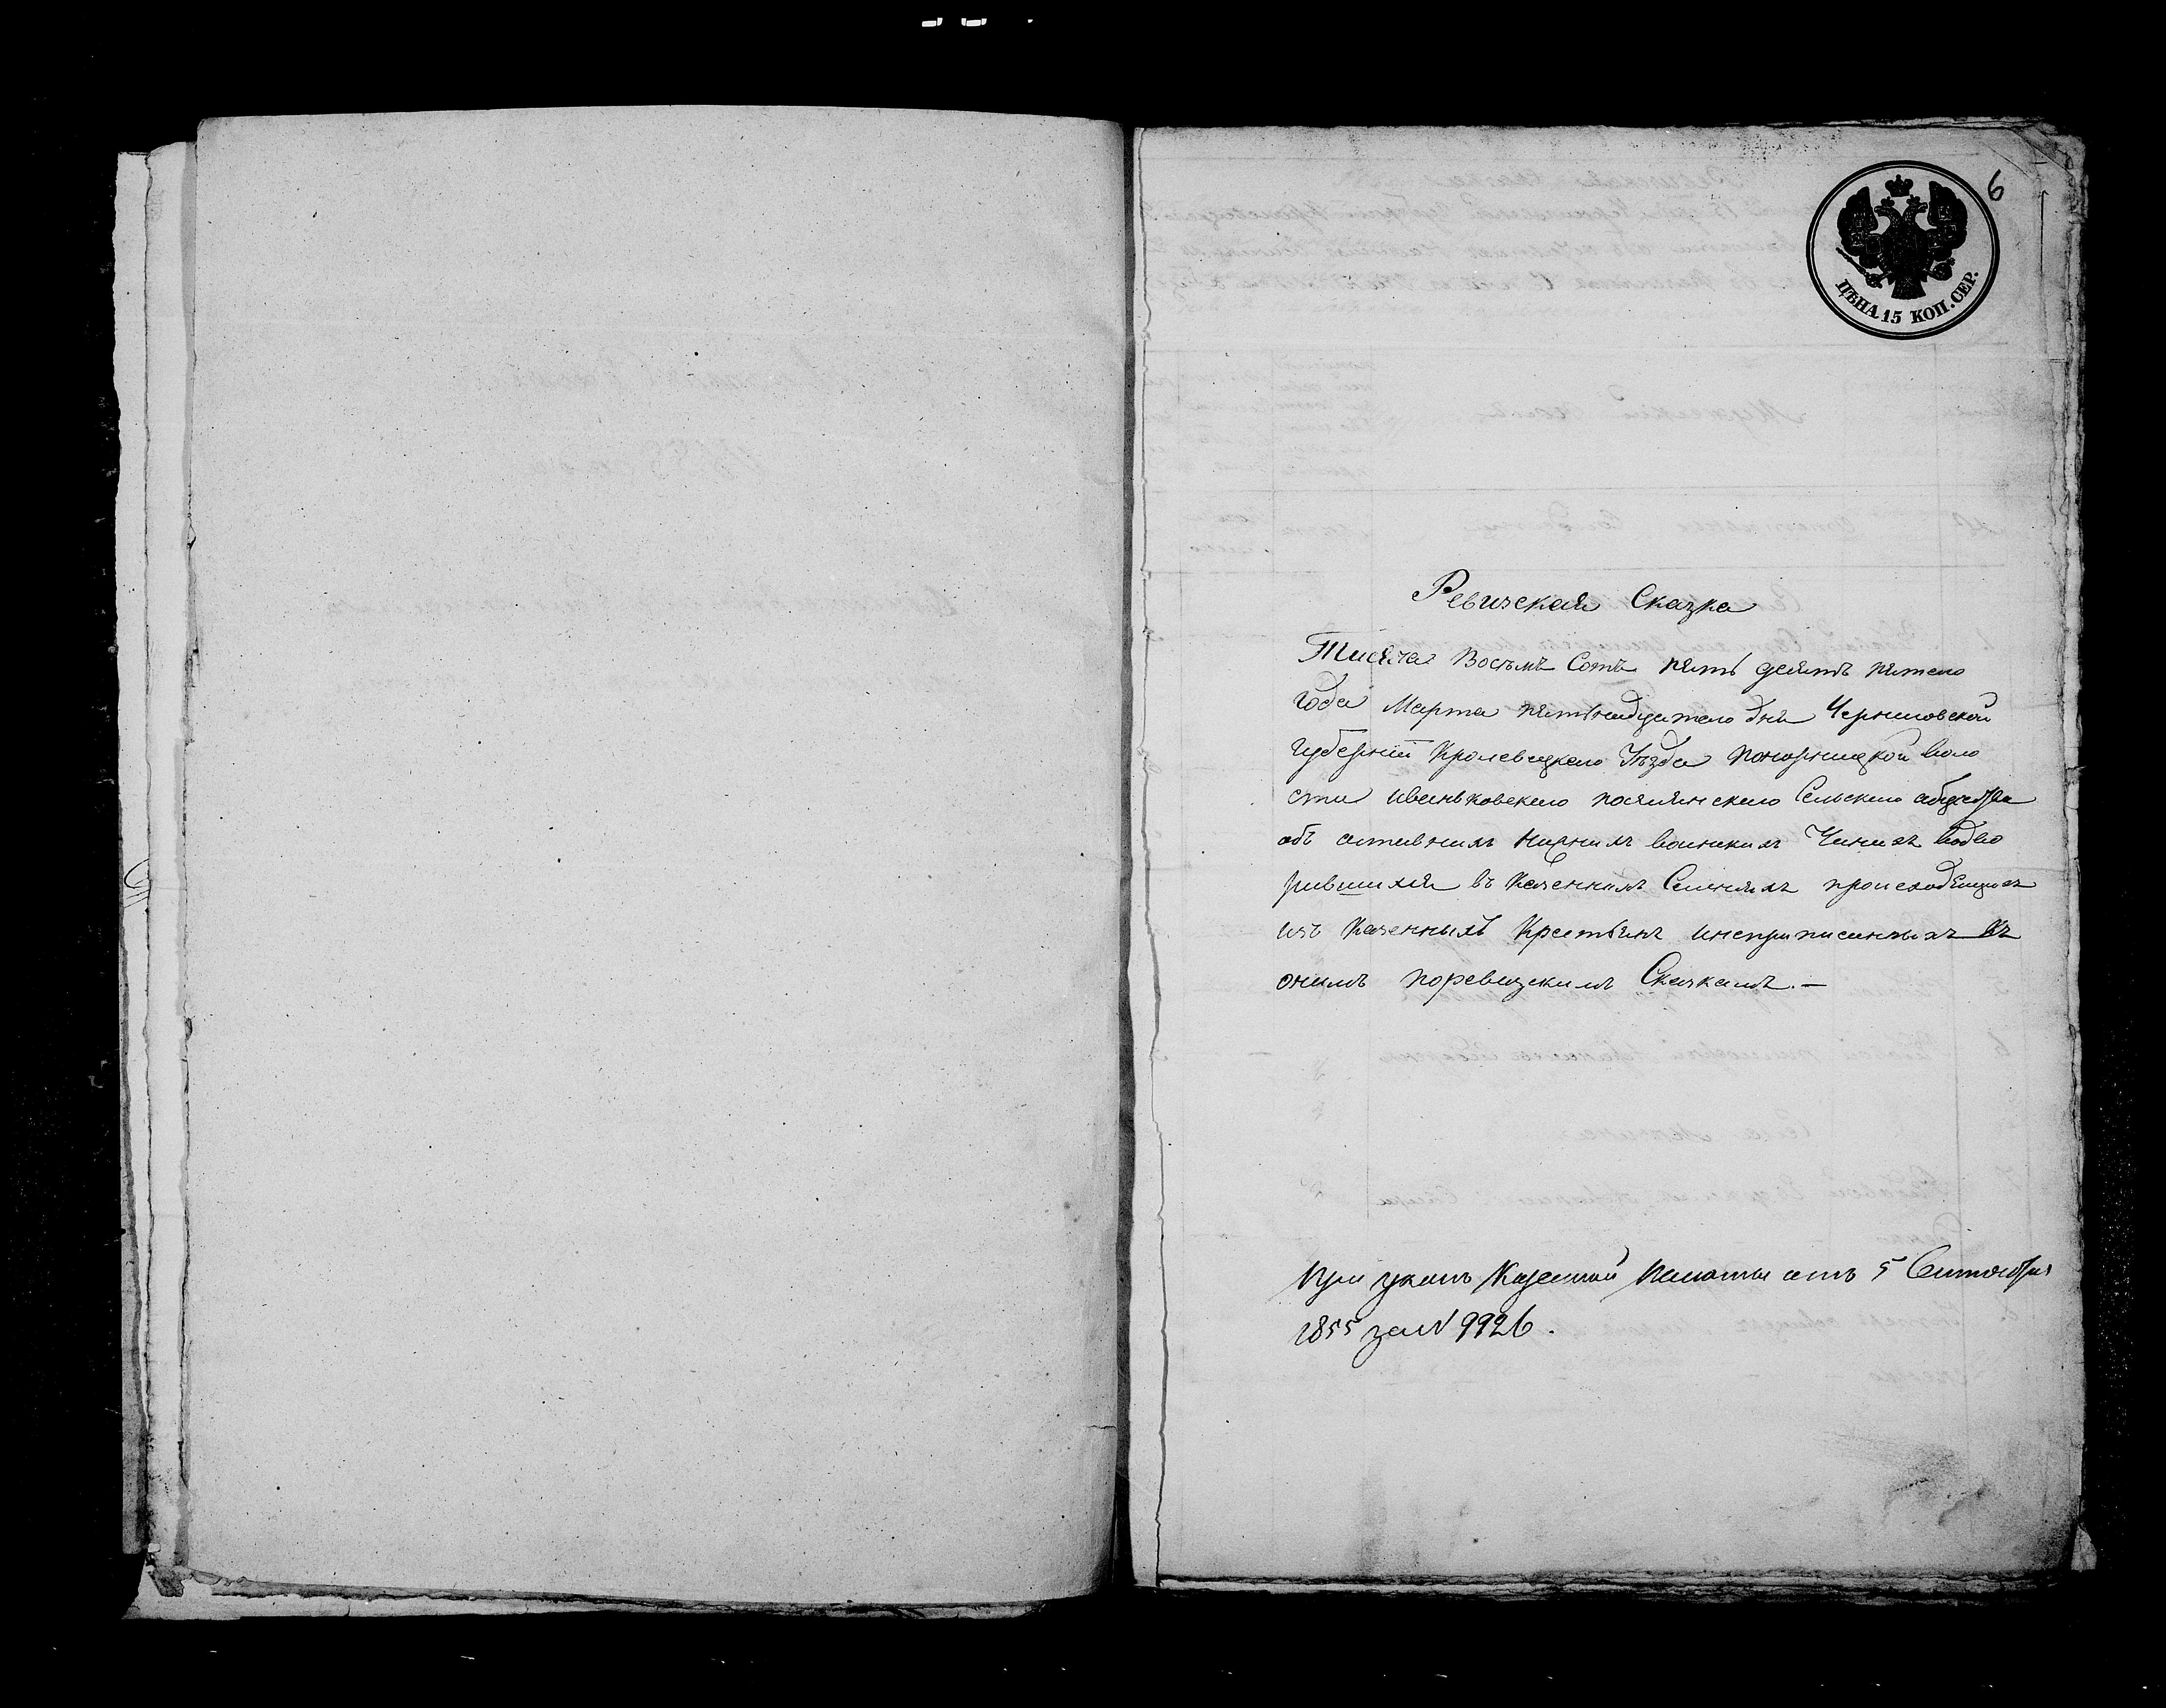 6
ЦѢНА 15 КОП. СЕР.
Ревизская Сказка
Тисяча Восемъ Сотъ пять десятъ пятого
года Марта пятьнадцатого дня Черниговской
губернiи Кролевецкого Уѣзда Понорницкой воло
сти Иваньковского Сельского общества
объ отставнихъ нижнихъ воинскихъ Чинахъ водво
рившихся въ Казеннихъ Селенияхъ происходящихъ
изъ Казеннихъ Крестьянъ инеприписанныхъ къ
онимъ поревизскимъ Сказкамъ. —
При указѣ Казенной Палаты отъ 5 Сентября
1855 за N 9926.